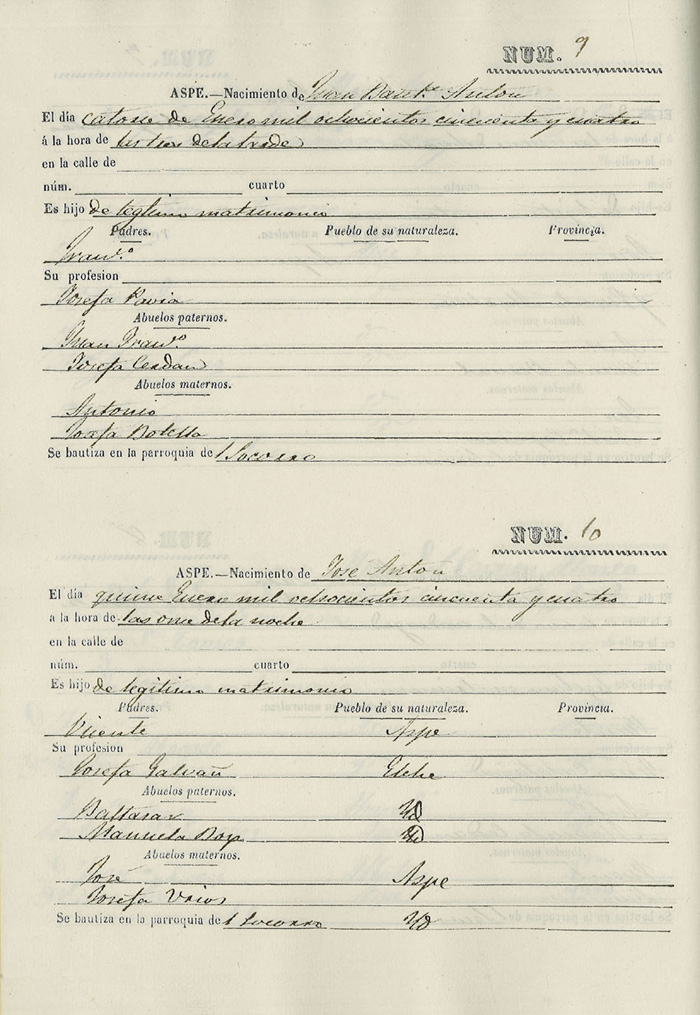 NUM. 9
ASPE.—Nacimiento de Juan Baut.ta Anton
El día catorse de Enero mil ochocientos cincuenta y cuatro
á la hora de las tres de la tarde
en la calle de
núm. cuarto
Es hijo de legitimo matrimonio
Padres. Pueblo de su naturaleza. Provincia.
Fran.co
Su profesion
Josefa Pavia
Abuelos paternos.
Juan Fran.co
Josefa Cerdan
Abuelos maternos.
Antonio
Josefa Botella
Se bautiza en la parroquia de l Socorro
NUM. 10
ASPE.—Nacimiento de Jose Anton
El día quince Enero mil ochocientos cincuenta y cuatro
a la hora de las once de la noche
en la calle de
núm. cuarto
Es hijo de legitimo matrimonio
Padres. Pueblo de su naturaleza. Provincia.
Vicente Aspe
Su profesion
Josefa Galvañ Elche
Abuelos paternos.
Baltasar Yd
Manuela Yd
Abuelos maternos.
José Aspe
Josefa
Se bautiza en la parroquia de l Socorro Yd